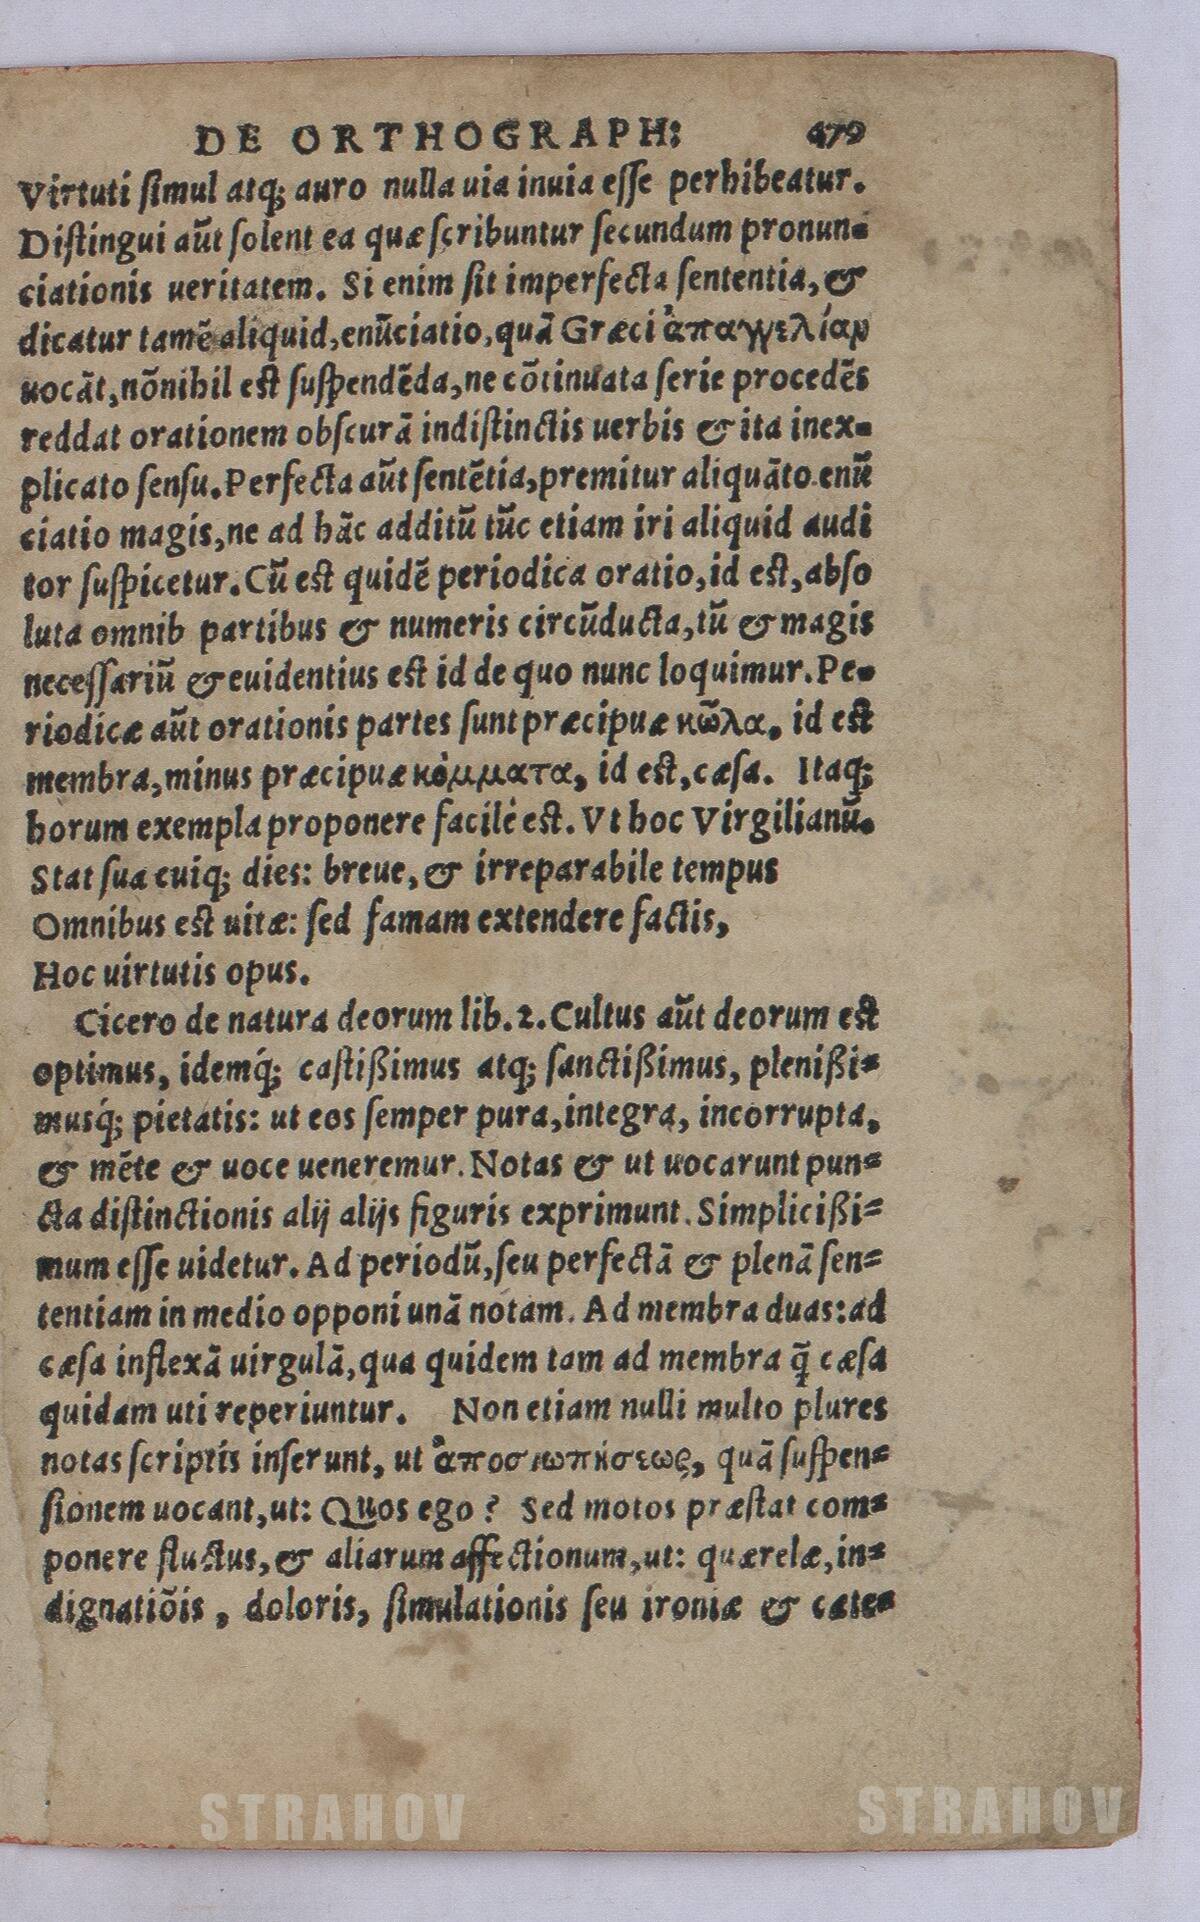 DE ORTHOGRAPH: 479
Virtuti simul atq; auro nulla uia inuia esse perhibeatur.
Distingui aūt solent ea quæ scribuntur secundum pronun-
ciationis ueritatem. Si enim sit imperfecta sententia, &
dicatur tamē aliquid, enūciatio, quā Græci ἀπαγγελίαν
uocāt, nōnihil est suspendēda, ne cōtinuata serie procedēs
reddat orationem obscurā indistinctis uerbis & ita inex-
plicato sensu. Perfecta aūt sentētia, premitur aliquāto enū
ciatio magis, ne ad hāc additū tūc etiam iri aliquid audi
tor suspicetur. Cū est quidē periodica oratio, id est, abso
luta omnib partibus & numeris circūducta, tū & magis
necessariū & euidentius est id de quo nunc loquimur. Pe-
riodicæ aūt orationis partes sunt præcipuæ κῶλα, id est
membra, minus præcipuæ κόμματα, id est, cæsa. Itaq;
horum exempla proponere facile est. Vt hoc Virgilianū.
Stat sua cuiq; dies: breue, & irreparabile tempus
Omnibus est uitæ: sed famam extendere factis,
Hoc uirtutis opus.
Cicero de natura deorum lib. 2. Cultus aūt deorum est
optimus, idemq́; castißimus atq; sanctißimus, plenißi-
musq́; pietatis: ut eos semper pura, integra, incorrupta,
& mēte & uoce ueneremur. Notas & ut uocarunt pun-
cta distinctionis alij alijs figuris exprimunt. Simplicißi-
mum esse uidetur. Ad periodū, seu perfectā & plenā sen-
tentiam in medio opponi unā notam. Ad membra duas: ad
cæsa inflexā uirgulā, qua quidem tam ad membra q̄ cæsa
quidam uti reperiuntur. Non etiam nulli multo plures
notas scriptis inserunt, ut ἀποσιωπήσεως, quā suspen-
sionem uocant, ut: Quos ego? Sed motos præstat com-
ponere fluctus, & aliarum affectionum, ut: quærelæ, in-
dignatiōis, doloris, simulationis seu ironiæ & cate-
STRAHOV STRAHOV